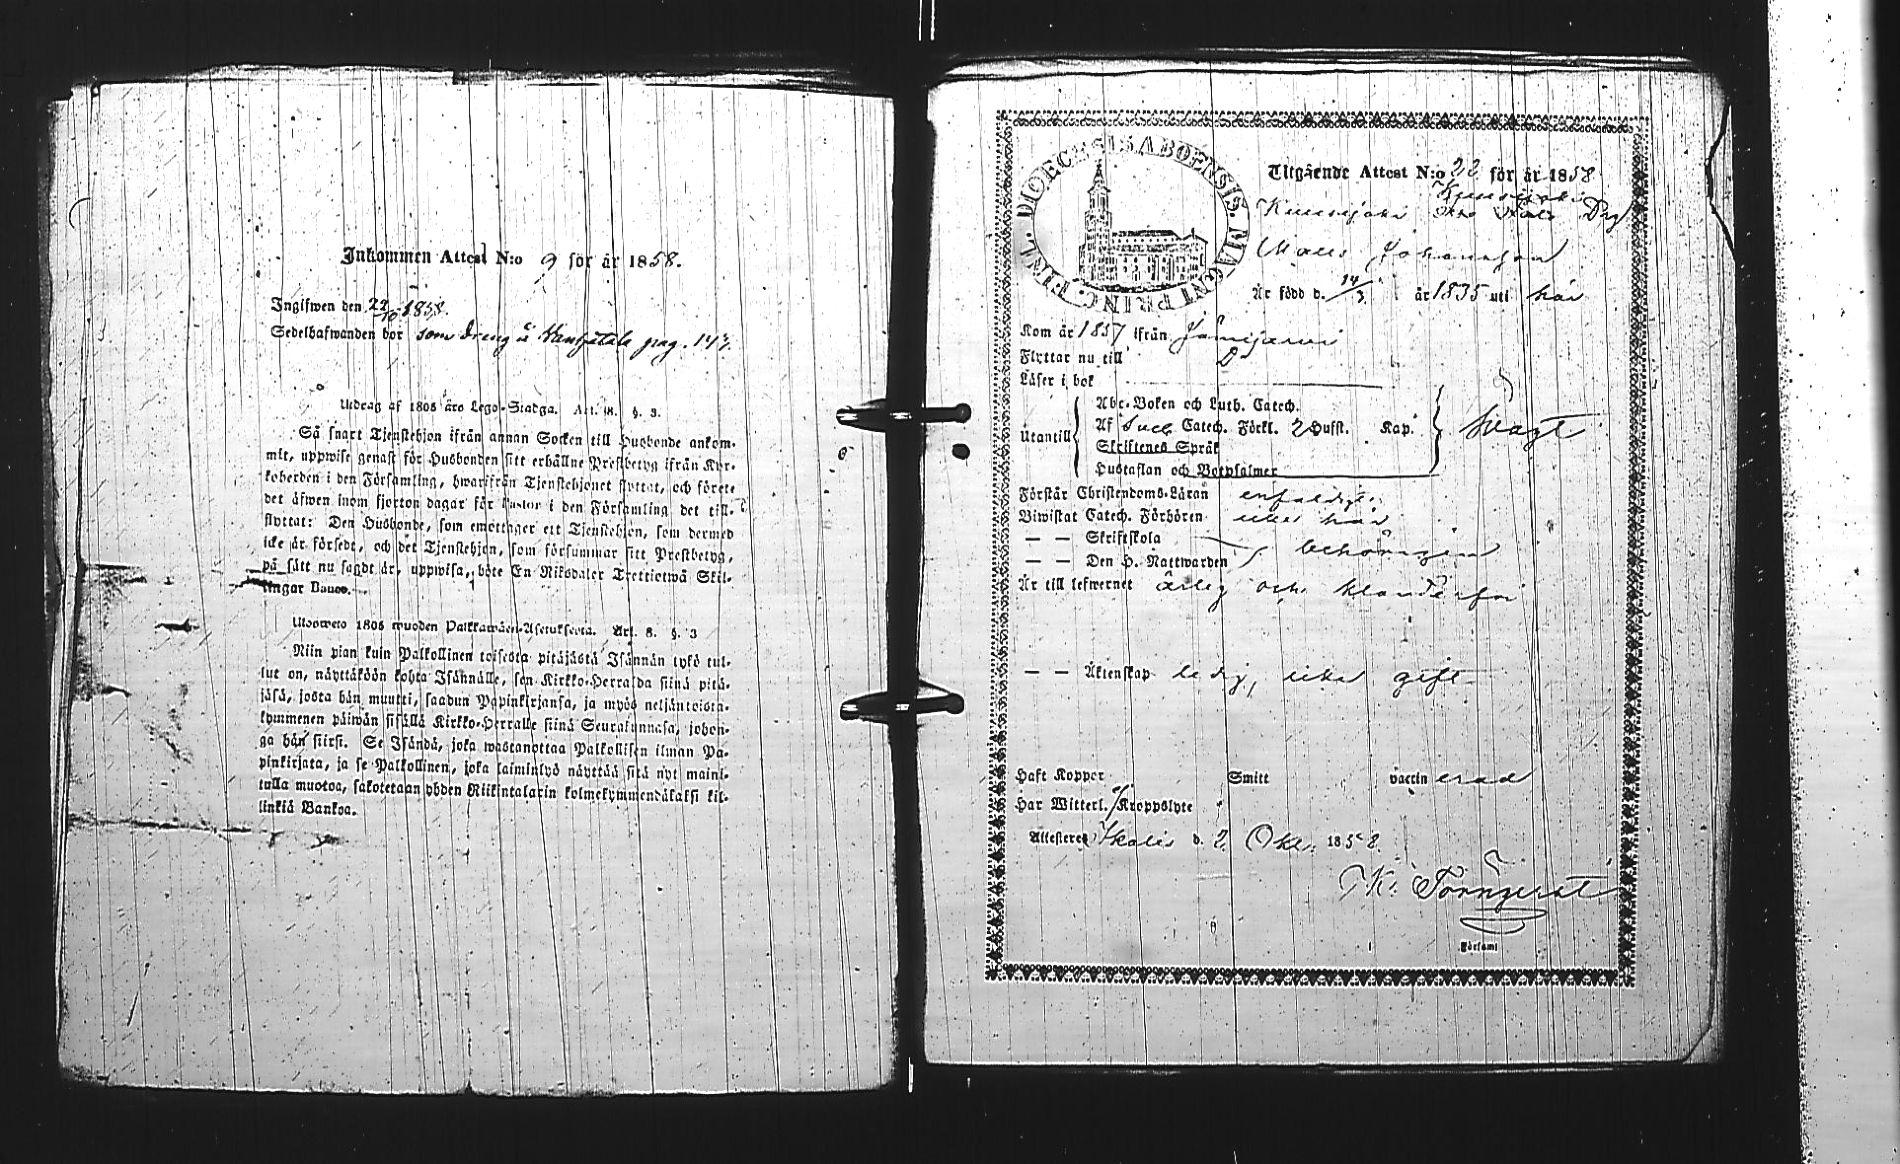 Inkommen Attest N:o 9 för år 1858.
Ingifwen den 22/10 1858.
Sedelhafwanden bor som dreng å pag. 147.
Utdrag af 1805 års Lego-Stadga. Art. 8. §. 3.
Så snart Tjenstehjon ifrån annan Socken till Husbonde ankom-
mit, uppwise genast för Husbonden sitt erhållne Prestbetyg ifrån Kyr-
koherden i den Församling, hwarifrån Tjenstehjonet flyttat, och förete
det äfwen inom fjorton dagar för Pastor i den Församling det till-
flyttat: Den Husbonde, som emottager ett Tjenstehjon, som dermed
icke är försedt, och det Tjenstehjon, som försummar sitt Prestbetyg,
på sätt nu sagdt är, uppwisa, böte En Riksdaler Trettiotwå Skil-
lingar Banco.
Ulosweto 1805 wuoden Palkkawäen-Asetuksesta. Art. 8. §. 3
Niin pian kuin Palkollinen toisesta pitäjästä Isännän tykö tul-
lut on, näyttäköön kohta Isännälle, sen Kirkko-Herralda siinä pitä-
jäsä, josta hän muutti, saadun Papinkirjansa, ja myös neljäntoista-
kymmenen päiwän sisällä Kirkko-Herralle siinä Seurakunnasa, johon-
ga hän siirsi. Se Isändä, joka wastanottaa Palkollisen ilman Pa-
pinkirjata, ja se Palkollinen, joka laiminlyö näyttää sitä nyt maini-
tulla muotoa, sakotetaan yhden Riikintalarin kolmekymmendäkaksi kil-
linkiä Bankoa.
DIOECESIS ABOENSIS. MAGNI PRINC. FINL.
Utgående Attest N:o 22 för år 1858
Kuusijoki
Johansson
Är född d. 14/3 år 1835 uti här
Kom år 1857 ifrån Jämijärvi
Flyttar nu till
Läser i bok
Abc-Boken och Luth. Catech.
Utantill Af Sveb. Catech. Förkl. 2 Hufst. Kap. svagt
Skriftenes Språk
Hustaflan och Botpsalmer
Förstår Christendoms-Läran enfaldigt
Biwistat Catech. Förhören icke här
— — Skriftskola
— — Den H. Nattwarden behörigen
Är till lefwernet ärlig och klanderfri
— — Äktenskap ledig, icke gift
Haft Koppor Smitt vaccin erad
Har Witterl. Kroppslyte
Attesteras Ikalis d. 2 Okt. 1858.
K. Törnqvist
Församl